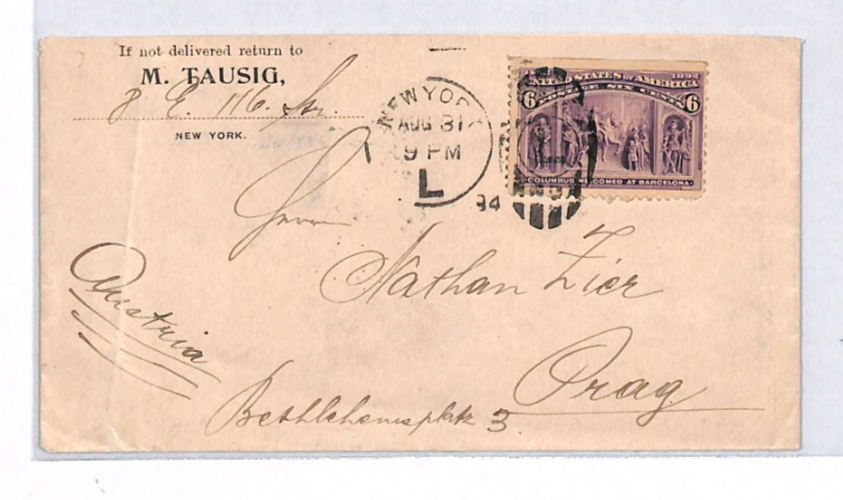 If not delivered return to
M. TAUSIG,
8 E. 116. Str.
NEW YORK.
NEW YORK
AUG 31
9 PM
L
94
1892
UNITED STATES OF AMERICA
POSTAGE SIX CENTS
6 6
COLUMBUS WELCOMED AT BARCELONA
Herrn
Nathan Zier
Austria
Prag
Bethlehemsplatz 3